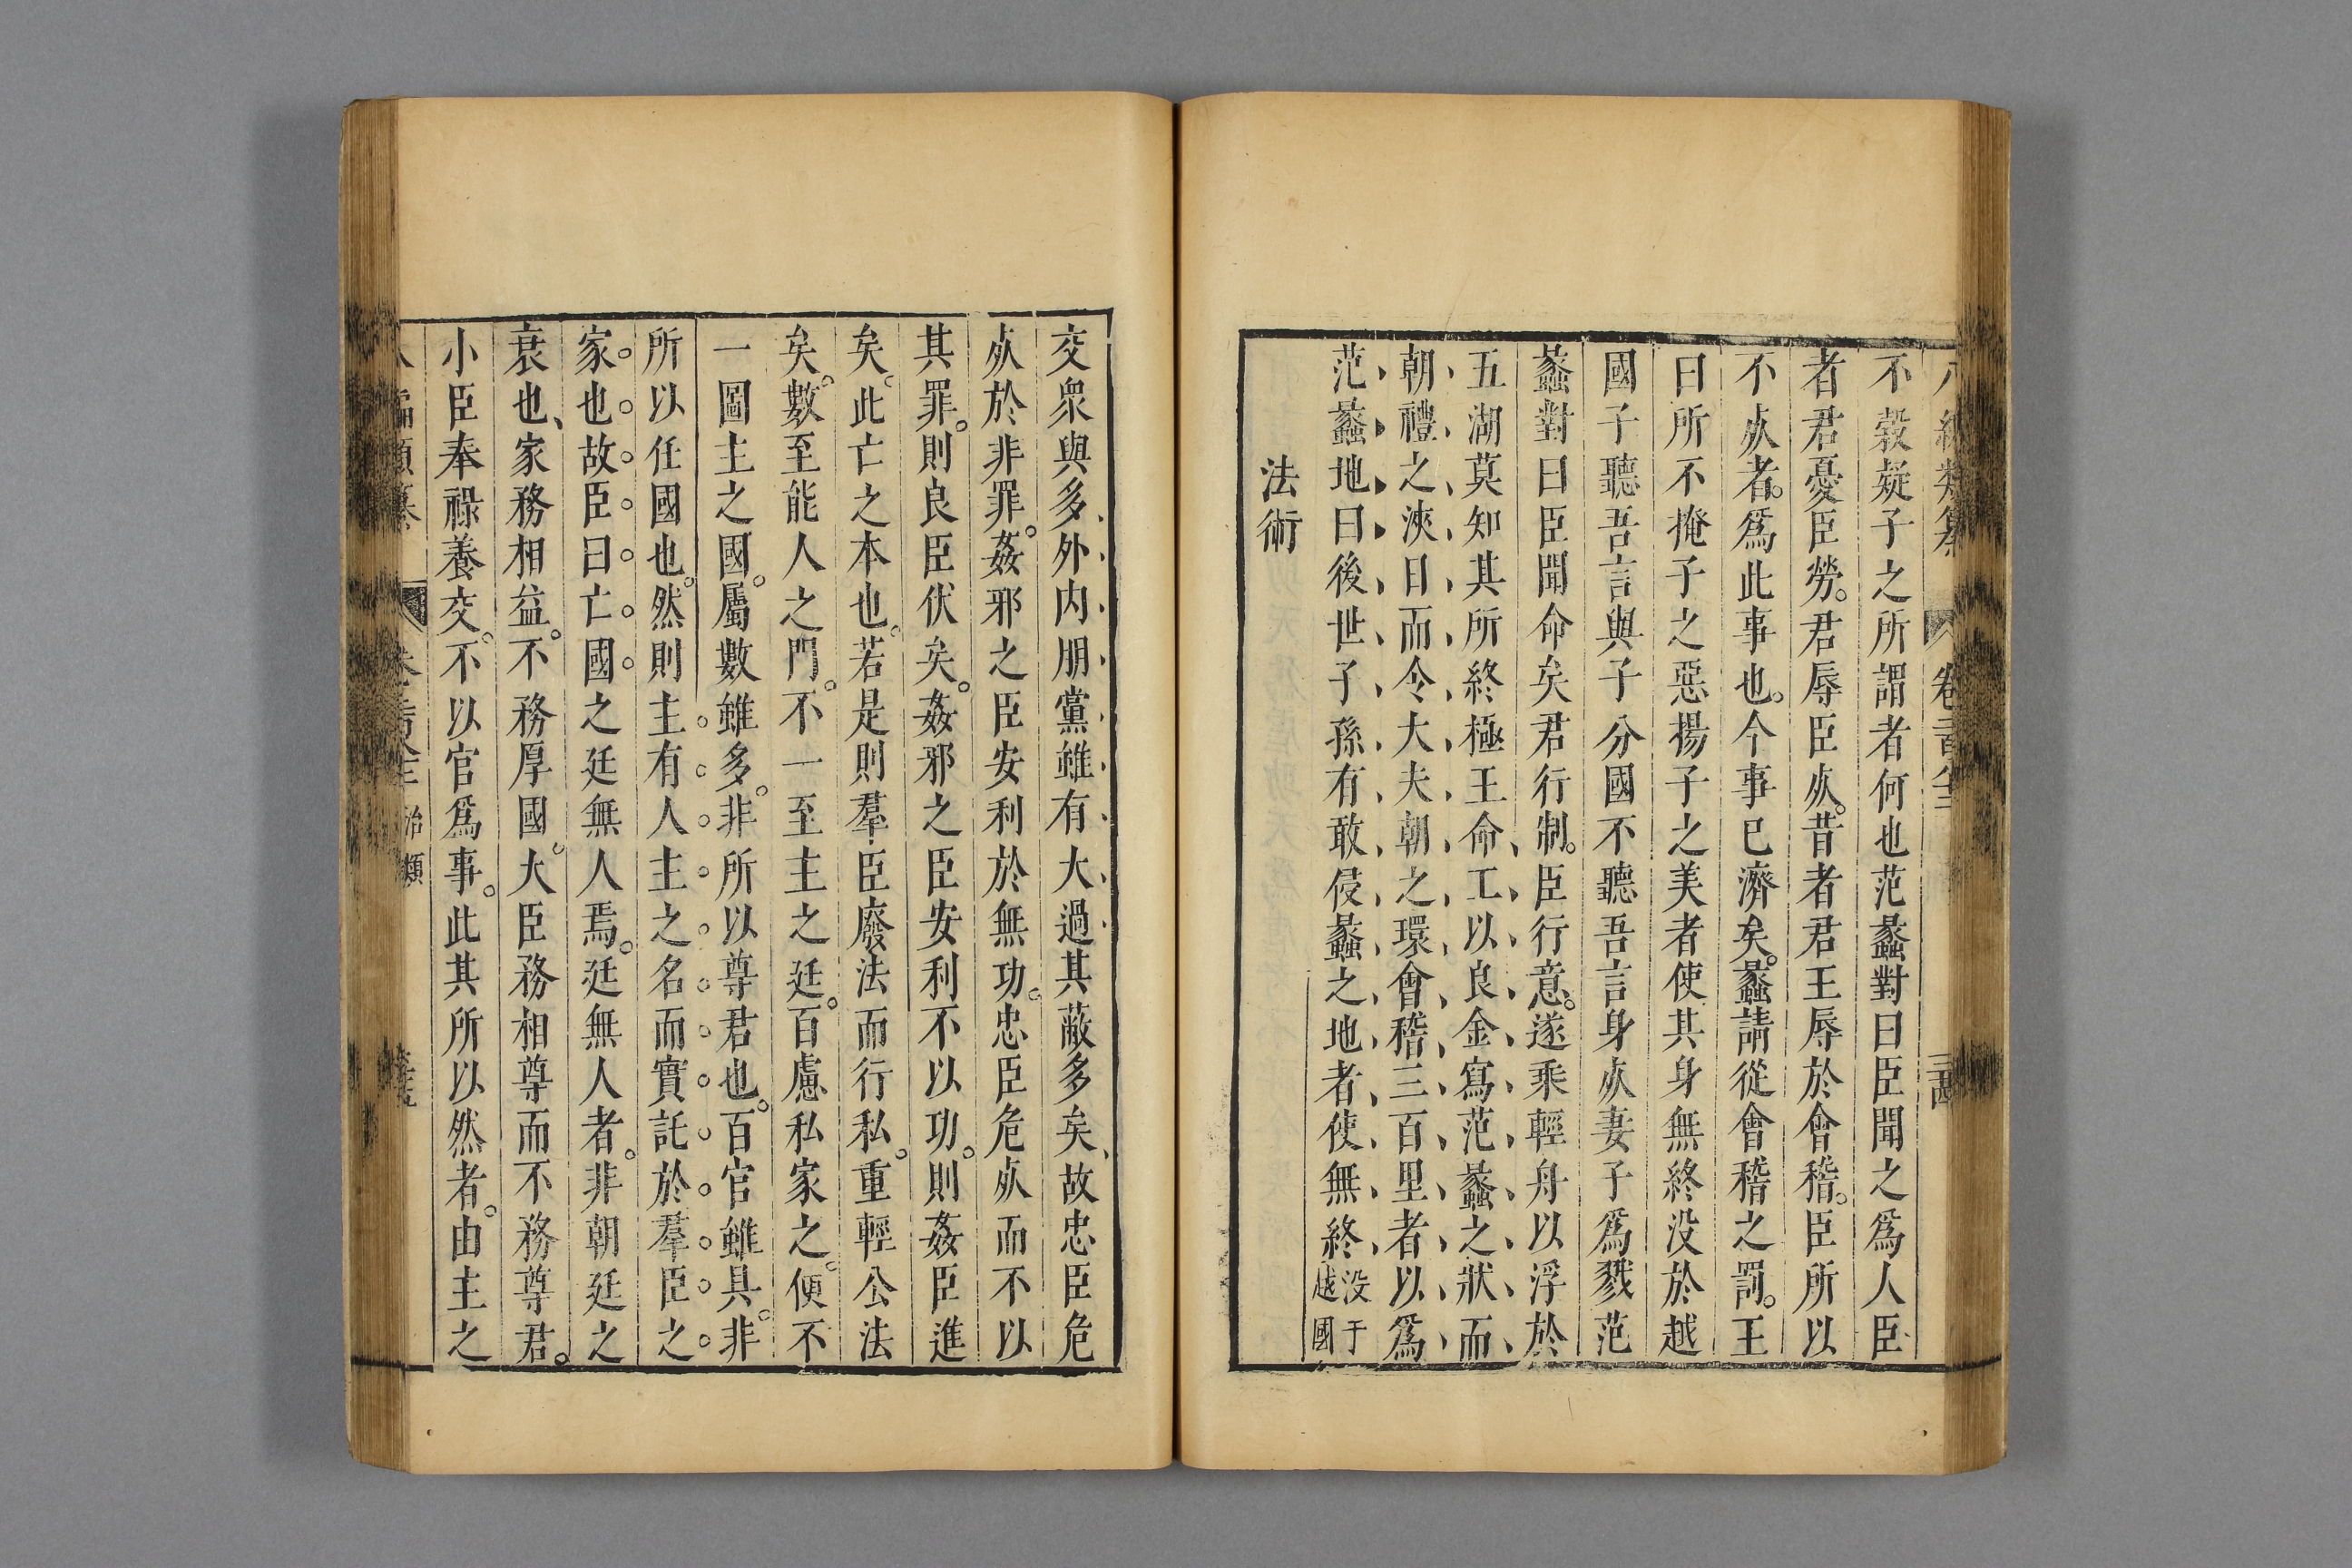 不穀疑子之所謂者何也范蠡對曰臣聞之爲人臣
者君憂臣勞。君辱臣死。昔者君王辱於會稽。臣所以
不死者。爲此事也。今事已濟矣。蠡請從會稽之罰。王
曰所不掩子之惡揚子之美者使其身無終没於越
國子聽吾言與子分國不聽吾言身死妻子爲戮范
蠡對曰臣聞命矣君行制。臣行意。遂乘輕舟以浮於
五湖莫知其所終極王命工以良金寫范蠡之狀而
朝禮之浹日而令大夫朝之環會稽三百里者以爲
范蠡地曰後世子孫有敢侵蠡之地者使無終没于越國
法術
交衆與多外内朋黨雖有大過其蔽多矣、故忠臣危
死於非罪。姦邪之臣安利於無功。忠臣危死而不以
其罪。則良臣伏矣。姦邪之臣安利不以功。則姦臣進
矣。此亡之本也。若是則羣臣廢法而行私。重輕公法
矣。數至能人之門。不一至主之廷。百慮私家之。便不
一圖主之國。屬數雖多。非所以尊君也。百官雖具。非
所以任國也。然則主有人主之名而實託於羣臣之
家也故臣曰亡國之廷無人焉。廷無人者。非朝廷之
衰也、家務相益。不務厚國。大臣務相尊而不務尊君。
小臣奉祿養交。不以官爲事。此其所以然者。由主之
治類